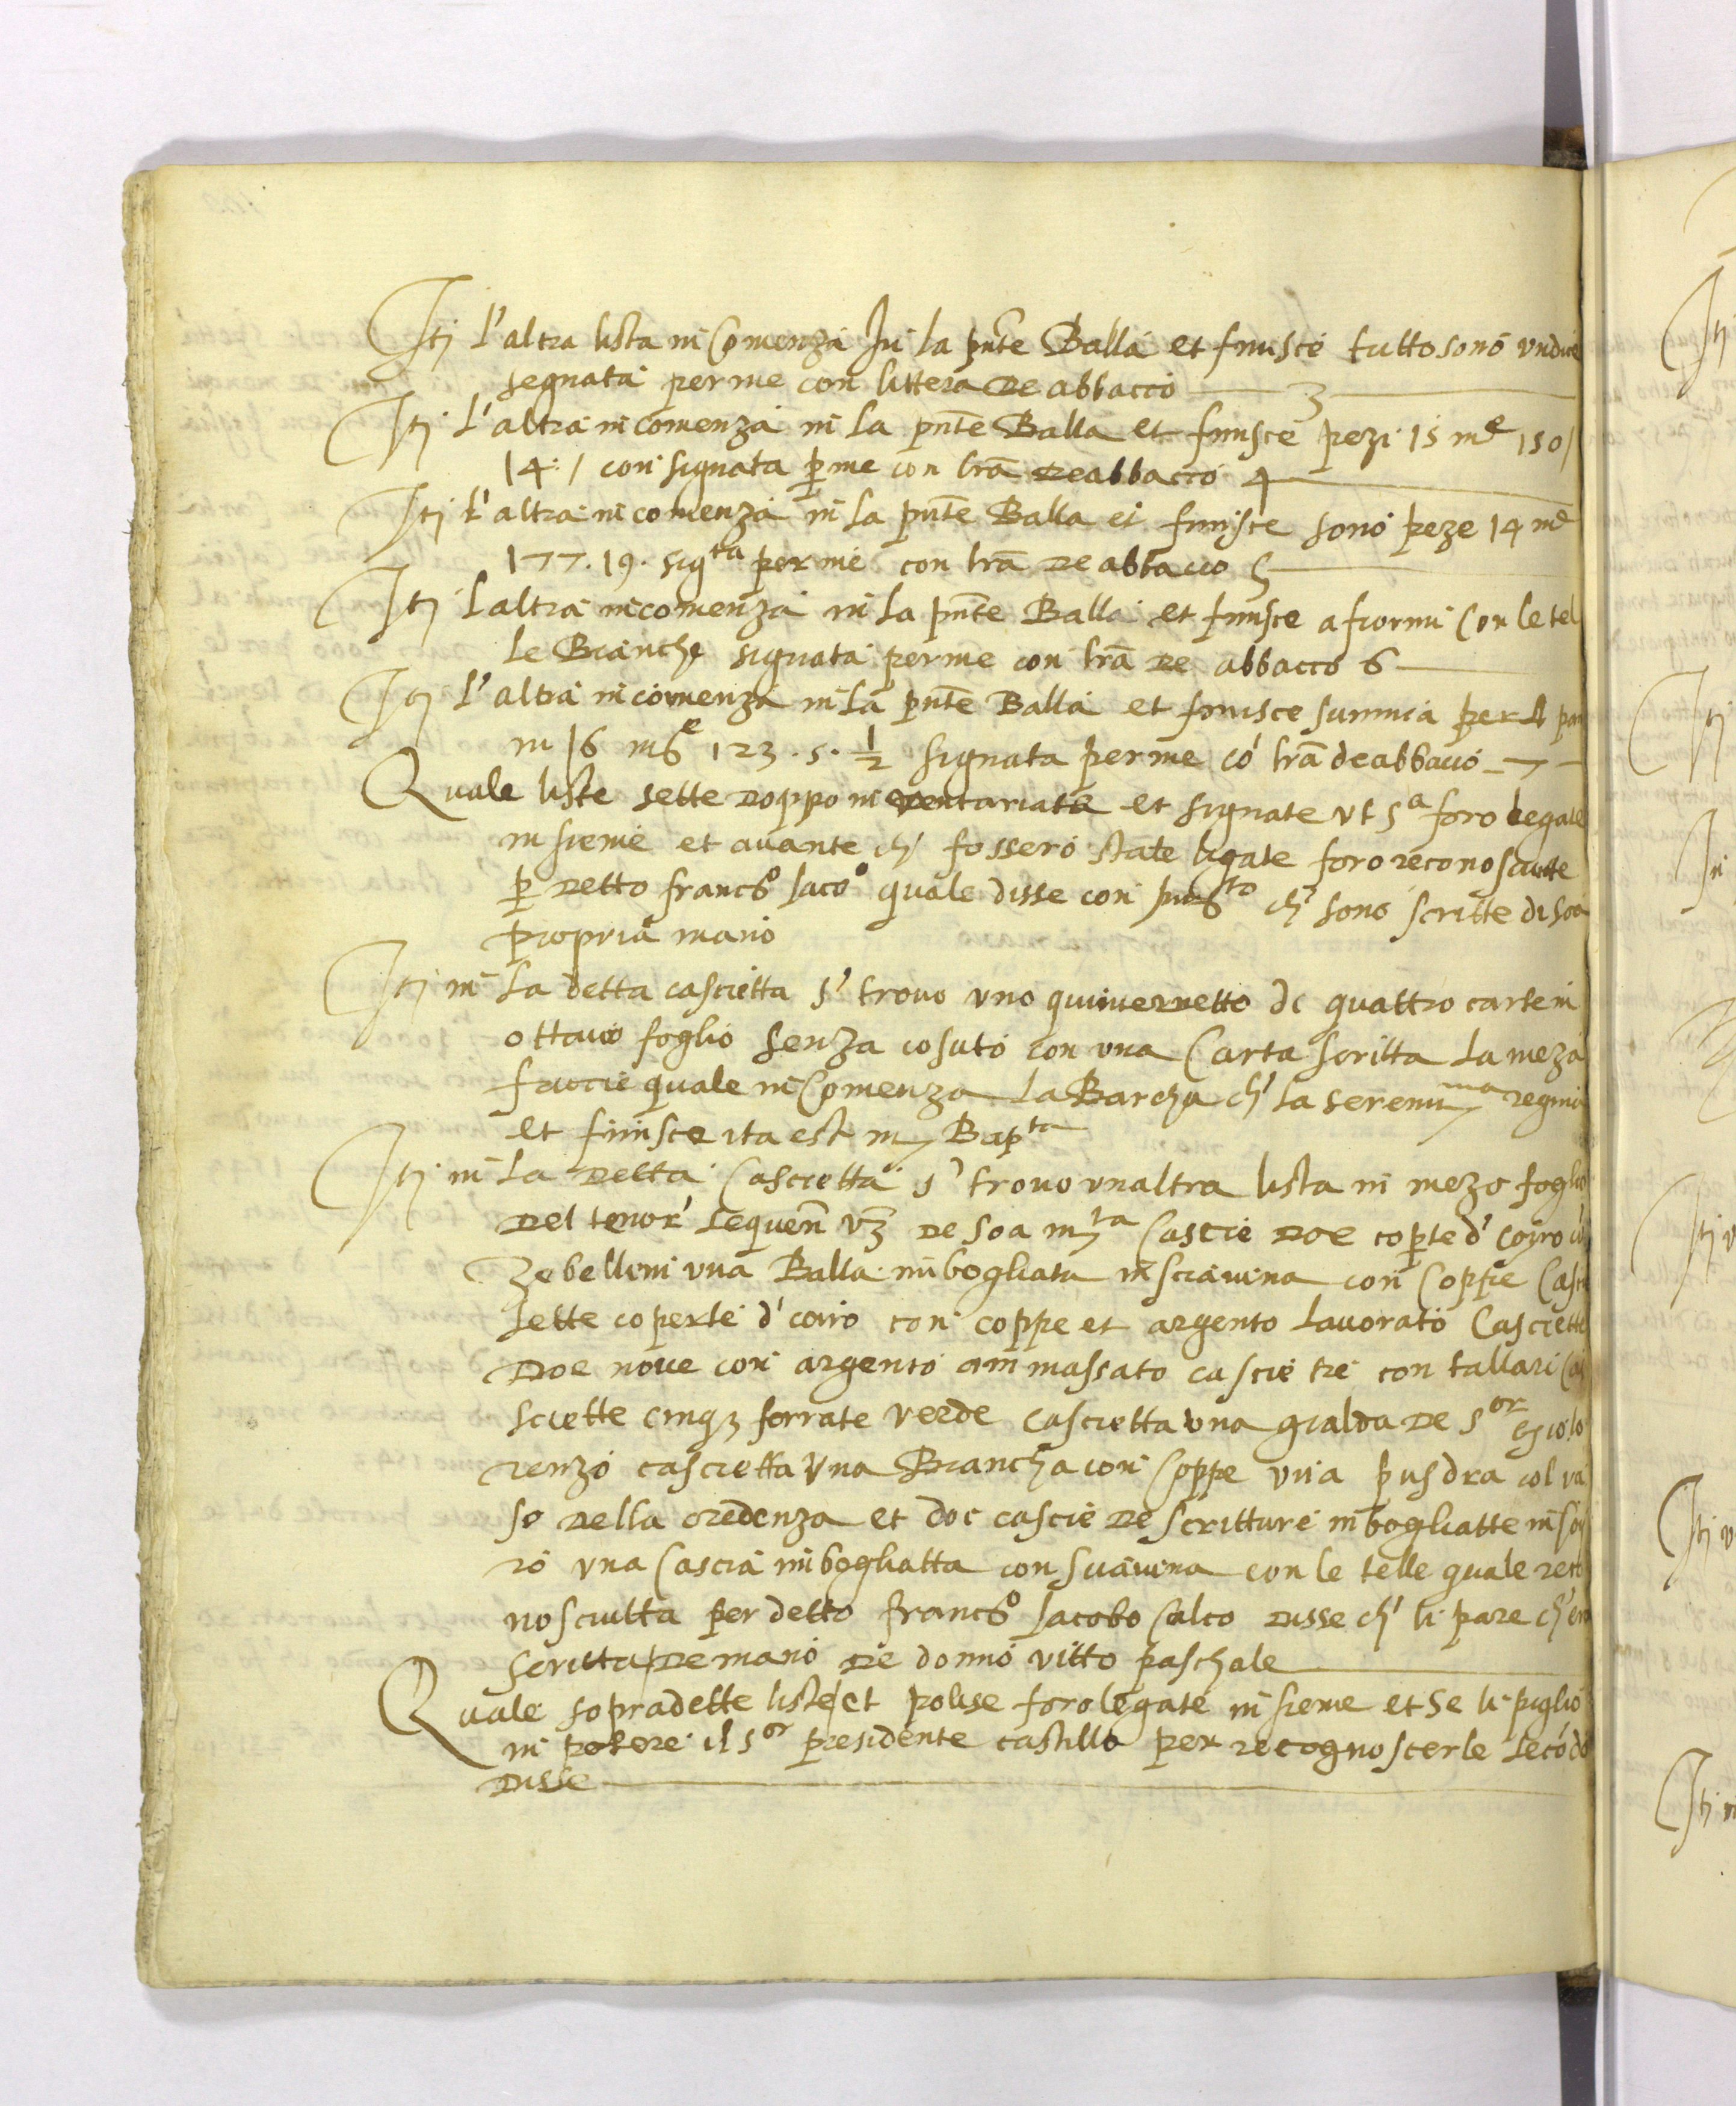 Itj l'altra lista incomenza In la pñte Balla et finisce tutto sono undice
segnata per me con littera de abbacco — 3 —
Itj l'altra incomenza in la pñte Balla et finisce pezi 15 m^e 150/
14:/ consignata p me con lrã de abbacco 4
Itj l'altra incomenza in la pñte Balla et finisce sono peze 14 m^e
177.19. sig^ta per me con lrã de abbacco 5
Itj L'altra incomenza in la pñte Balla et finisce a fiorini con le tel
le Bianche signata per me con lrã de abbacco 6
Itj l'altra incomenza in la pñte Balla et finisce summa per
in 16 m^e 123.5.½ signata per me cõ lrã de abbacco — 7 —
Quale liste sette doppo inventariate et signate ut s^a foro legate
insieme et avante ch' fossero state ligate foro reconosciute
p detto franc^o Jaco^o quale disse con ch' sono scritte di soa
propria mano
Itj in la detta cascietta s' trovo uno quinternetto de quattro carte in
ottavo foglio senza cosuto con una Carta scritta la meza
faccie quale incomenza La Barcha ch' la serenis^ma regina
et finisce ita est Bap^ta
Itj in la detta Cascietta s' trovo un altra lista in mezo foglio
del tenor' sequen̄ vz de soa m^ta Cascie doe copte d' coiro cõ
Zebellini una Balla imbogliata in sciavina con Coppe Casci
sette coperte d' coiro con coppe et argento lavorato Casciette
doe nove con argento ammassato cascie tre con tallari Ca
sciette cinqz ferrate verde cascietta una gialda de s^or lo
renzo cascietta una Biancha con Coppe una pusdra col va
so della credenza et doe cascie de scritture imbogliatte in coi
ro una Cascia imbogliatta con sciavina con le telle quale reco
nosciutta per detto franc^o Jacobo Calco disse ch' li pare ch' era
scritta de mano de donno vitto paschale
Quale sopradette liste et polise foro legate insieme et se li piglio
in potere il s^or presidente castillo per recognoscerle secõdo
disse